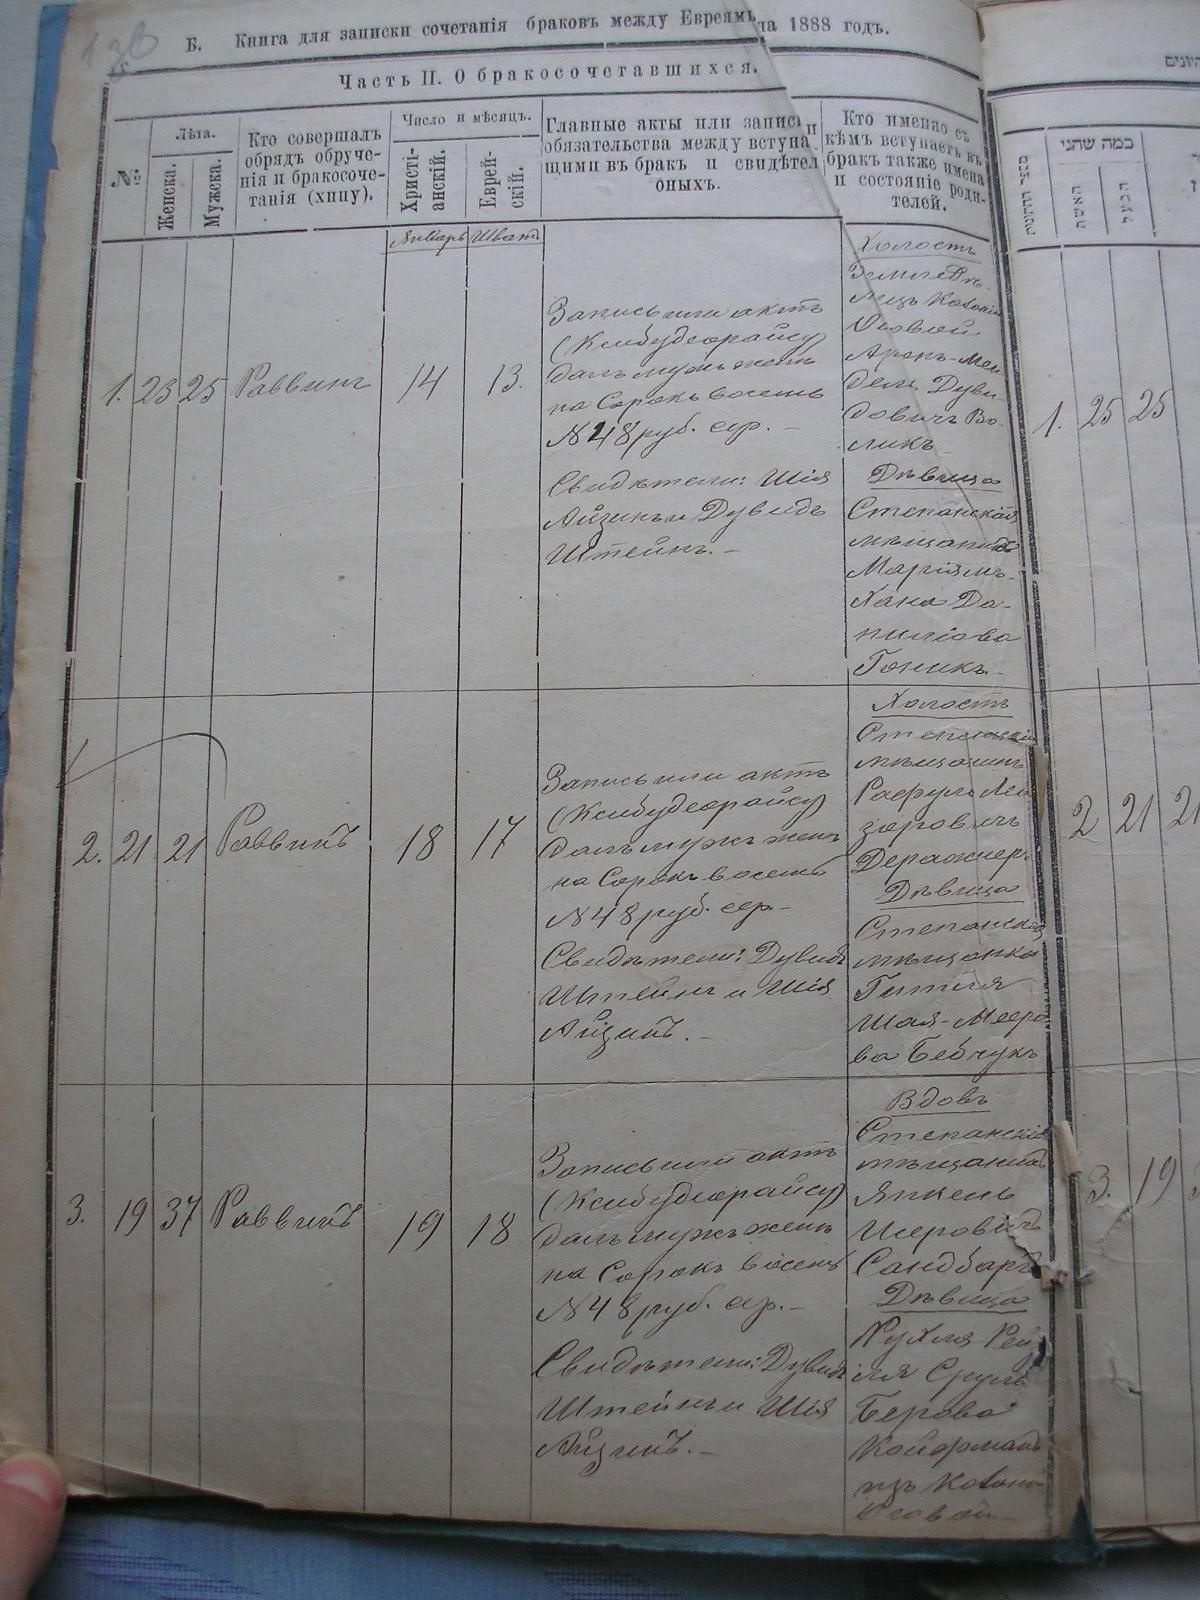 Б. Книга для записки сочетанія браковъ между Евреямъ на 1888 годъ.
Часть II. О бракосочетавшихся.
№
Лѣта.
Женска.
Мужска.
Кто совершалъ
обрядъ обруче-
нія и бракосоче-
танія (хипу).
Число и мѣсяцъ.
Христі-
анскій.
Еврей-
скій.
Главные акты или записи и
обязательства между вступа-
щими въ бракъ и свидѣтел
оныхъ.
Кто именно съ
кѣмъ вступаетъ въ
бракъ также имена
и состояніе роди-
телей.
Январь Шватъ
1. 23 25 Раввинъ 14 13.
Запись или актъ
(Ксибудеорайсу)
далъ мужъ женѣ
на Сорокъ восемь
№ 48 руб. сер. –
Свидѣтели: Шія
Айзикъ и Дувидъ
Штейнъ. –
Холостъ
Землевлѣ-
лецъ Колоніи
Осовой
Аронъ-Мен
дель Дуви
довичъ Во-
ликъ
Дѣвица
Степанская
мѣщанка
Маріямъ-
Хана Да-
нилова
Гоникъ. –
2. 21 21 Раввинъ 18 17
Запись или актъ
(Ксибудеорайсу)
далъ мужъ женѣ
на Сорокъ восемь
№ 48 руб. сер. –
Свидѣтели: Дувидъ
Штейнъ и Шія
Айзикъ. –
Холостъ
Степанскій
мѣщанинъ
Рафулъ Лей
зоровичъ
Деражнеръ
Дѣвица
Степанская
мѣщанка
Гитля
Шая-Мееро
ва Бебчукъ
3. 19 37 Раввинъ 19 18
Запись или актъ
(Ксибудеорайсу)
далъ мужъ женѣ
на Сорокъ восемь
№ 48 руб. сер. –
Свидѣтели: Дувидъ
Штейнъ и Шія
Айзикъ. –
Вдовъ
Степанскій
мѣщанинъ
Янкель
Иеровичъ
Сандбаргъ
Дѣвица
Рухля Рей
зля Сруль
Берова
Койфманъ
изъ Колоніи
Осовой. –
כמה שהני
האשה
הבעל
1. 25 25
2 21 21
3. 19